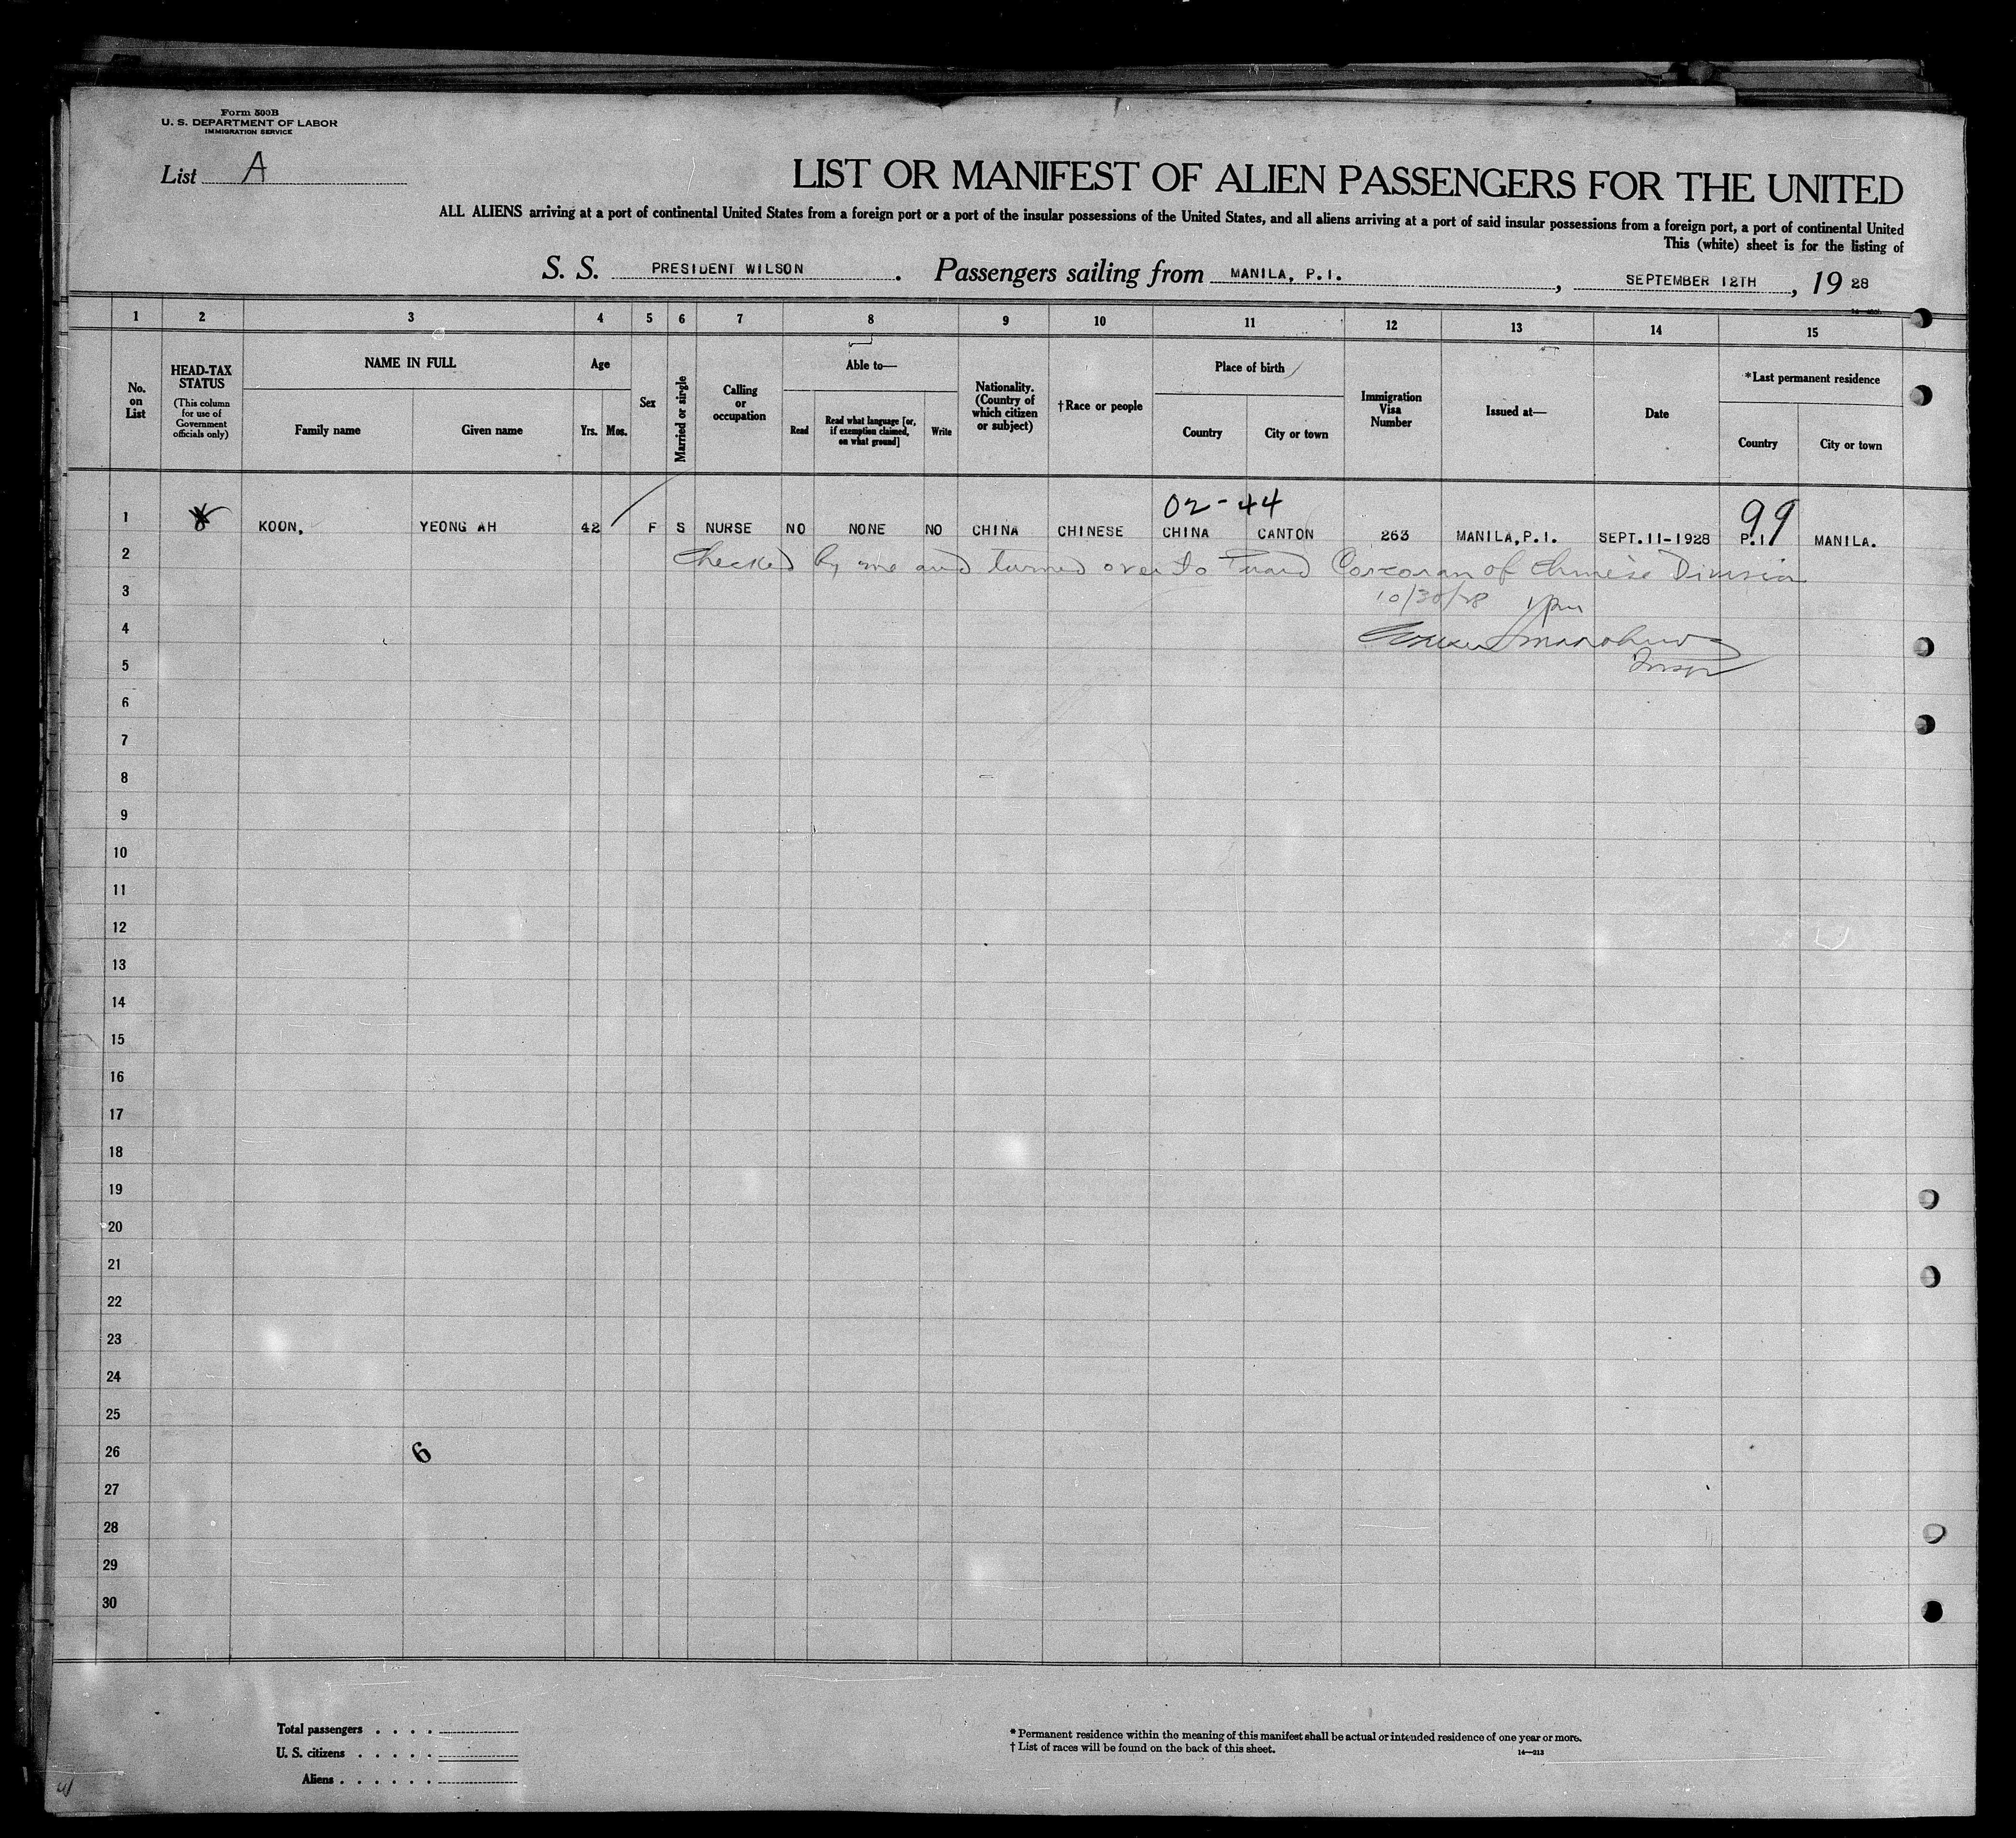 Form 500B
U. S. DEPARTMENT OF LABOR
IMMIGRATION SERVICE
List A
LIST OR MANIFEST OF ALIEN PASSENGERS FOR THE UNITED
ALL ALIENS arriving at a port of continental United States from a foreign port or a port of the insular possessions of the United States, and all aliens arriving at a port of said insular possessions from a foreign port, a port of continental United
This (white) sheet is for the listing of
S. S. PRESIDENT WILSON. Passengers sailing from MANILA, P.I., SEPTEMBER 12TH, 19 28
1 2 3 4 5 6 7 8 9 10 11 12 13 14 15
No. on List
HEAD-TAX STATUS
(This column for use of Government officials only)
NAME IN FULL
Family name Given name
Age
Yrs. Mos.
Sex
Married or single
Calling or occupation
Able to—
Read
Read what language [or, if exemption claimed, on what ground]
Write
Nationality. (Country of which citizen or subject)
†Race or people
Place of birth
Country City or town
Immigration Visa Number
Issued at—
Date
*Last permanent residence
Country City or town
02-44 99
1 KOON, YEONG AH 42 F S NURSE NO NONE NO CHINA CHINESE CHINA CANTON 263 MANILA, P.I. SEPT.11-1928 P.I. MANILA.
2 Checked by me and turned over to Guard Corcoran of Chinese Division
3 10/30/28 1 pm
4
5 Inspr
6
7
8
9
10
11
12
13
14
15
16
17
18
19
20
21
22
23
24
25
26 6
27
28
29
30
Total passengers . . . .
U. S. citizens . . . . .
Aliens . . . . . .
* Permanent residence within the meaning of this manifest shall be actual or intended residence of one year or more.
† List of races will be found on the back of this sheet.
14—213